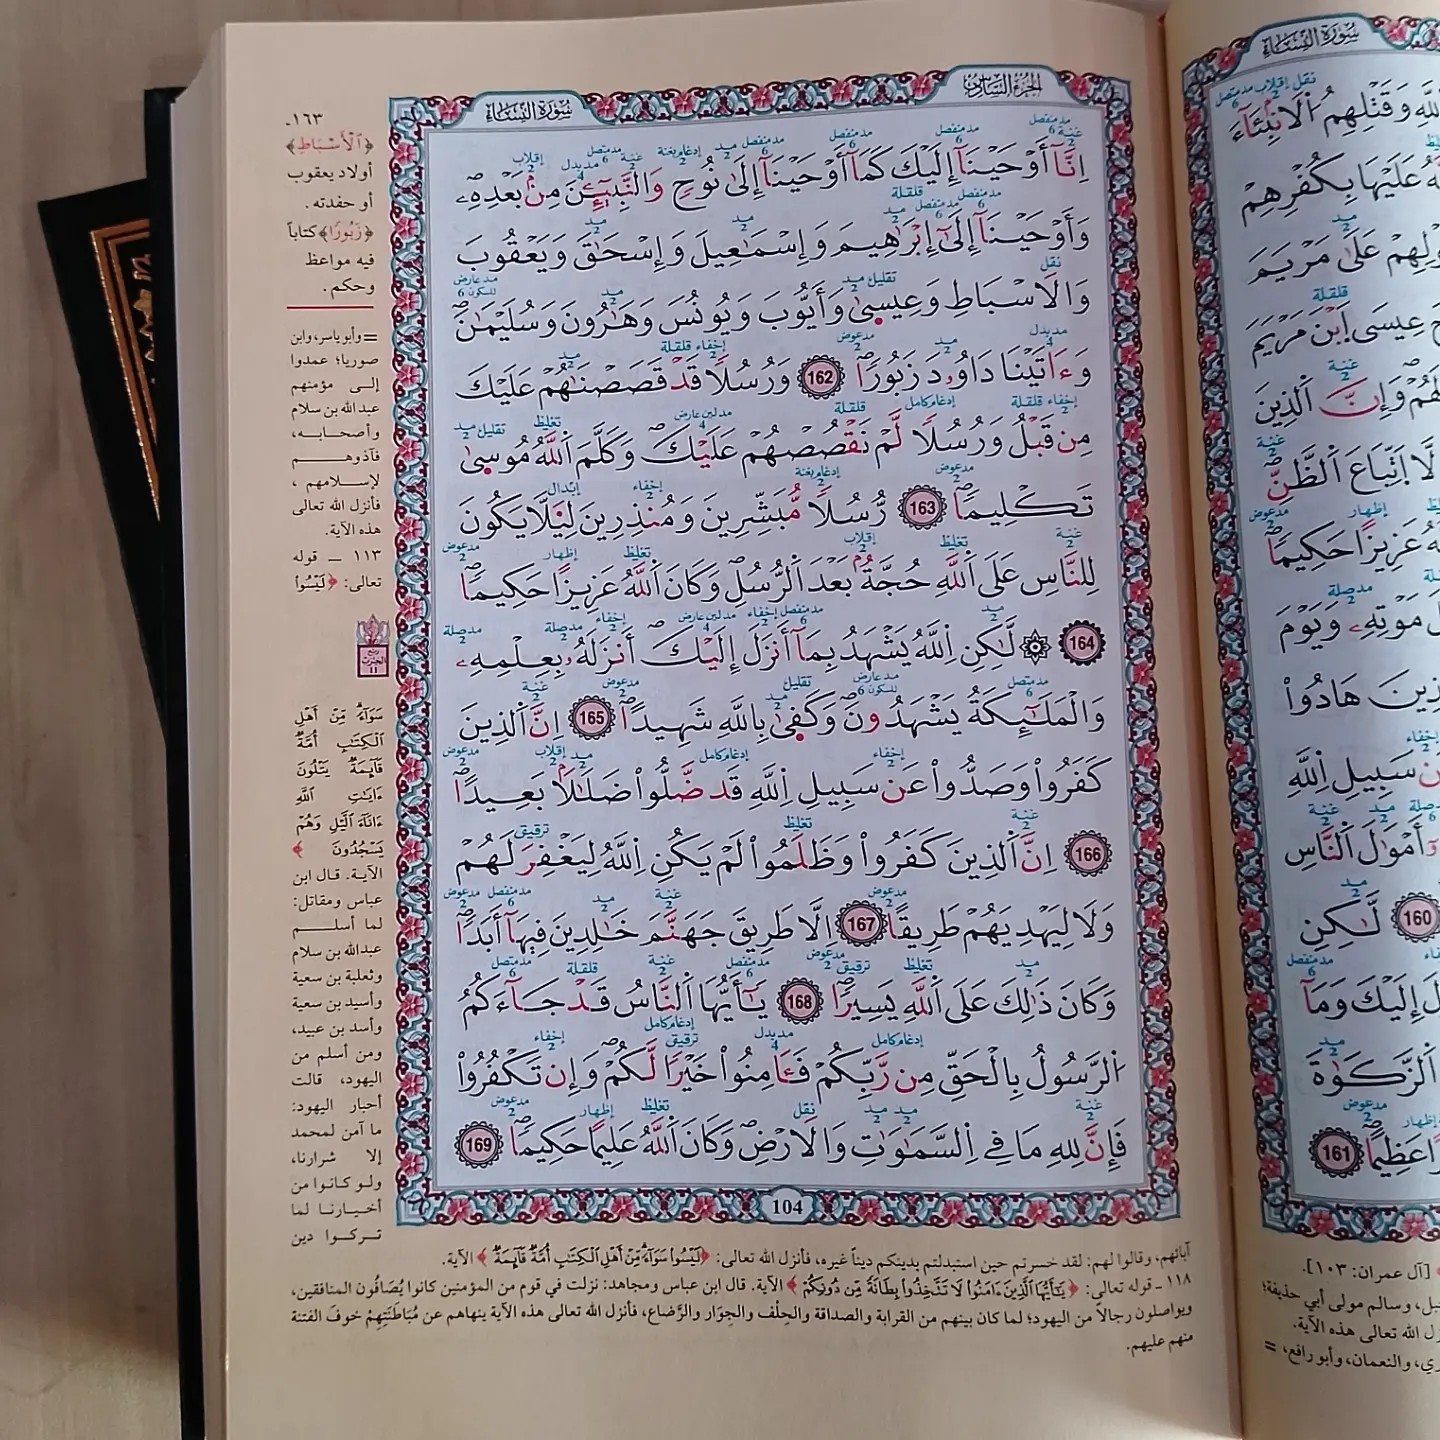 سُورَةُ النِّسَاءِ
الجُزْءُ السَّادِسُ
إِنَّآ أَوْحَيْنَآ إِلَيْكَ كَمَآ أَوْحَيْنَآ إِلَىٰ نُوحٍ وَالنَّبِيٓـِٕينَ مِنۢ بَعْدِهِۦ
وَأَوْحَيْنَآ إِلَىٰٓ إِبْرَٰهِيمَ وَإِسْمَٰعِيلَ وَإِسْحَٰقَ وَيَعْقُوبَ
وَالَاسْبَاطِ وَعِيسىٰ وَأَيُّوبَ وَيُونُسَ وَهَٰرُونَ وَسُلَيْمَٰنَ
وَءَاتَيْنَا دَاوُۥدَ زَبُورًا 162 وَرُسُلًا قَدْ قَصَصْنَٰهُمْ عَلَيْكَ
مِن قَبْلُ وَرُسُلًا لَّمْ نَقْصُصْهُمْ عَلَيْكَ وَكَلَّمَ اَللَّهُ مُوسىٰ
تَكْلِيمًا 163 رُّسُلًا مُّبَشِّرِينَ وَمُنذِرِينَ لِيَلَّا يَكُونَ
لِلنَّاسِ عَلَى اَللَّهِ حُجَّةُۢ بَعْدَ اَلرُّسُلِ وَكَانَ اَللَّهُ عَزِيزًا حَكِيمًا
164 ۞ لَّٰكِنِ اِللَّهُ يَشْهَدُ بِمَآ أَنزَلَ إِلَيْكَ أَنزَلَهُۥ بِعِلْمِهِۦ
وَالْمَلَٰٓئِكَةُ يَشْهَدُونَ وَكَفىٰ بِاللَّهِ شَهِيدًا 165 إِنَّ اَلذِينَ
كَفَرُواْ وَصَدُّواْ عَن سَبِيلِ اِللَّهِ قَد ضَّلُّواْ ضَلَٰلَۢا بَعِيدًا
166 إِنَّ اَلذِينَ كَفَرُواْ وَظَلَمُواْ لَمْ يَكُنِ اِللَّهُ لِيَغْفِرَ لَهُمْ
وَلَا لِيَهْدِيَهُمْ طَرِيقًا 167 اِلَّا طَرِيقَ جَهَنَّمَ خَٰلِدِينَ فِيهَآ أَبَدًا
وَكَانَ ذَٰلِكَ عَلَى اَللَّهِ يَسِيرًا 168 يَٰٓأَيُّهَا اَلنَّاسُ قَدْ جَآءَكُمُ
اُلرَّسُولُ بِالْحَقِّ مِن رَّبِّكُمْ فَـَٔامِنُواْ خَيْرًا لَّكُمْ وَإِن تَكْفُرُواْ
فَإِنَّ لِلهِ مَا فِي اِلسَّمَٰوَٰتِ وَالَارْضِ وَكَانَ اَللَّهُ عَلِيمًا حَكِيمًا 169
104
١٦٣-
﴿ٱلْأَسْبَاطِ﴾
أولاد يعقوب
أو حفدته.
﴿زَبُورًا﴾ كتاباً
فيه مواعظ
وحكم.
= وأبو ياسر، وابن
صوريا؛ عمدوا
إلى مؤمنهم
عبد الله بن سلام
وأصحابه،
فآذوهم
لإسلامهم،
فأنزل الله تعالى
هذه الآية.
١١٣ ـ قوله
تعالى: ﴿لَيْسُوا
سَوَآءً مِّنْ أَهْلِ
ٱلْكِتَٰبِ أُمَّةٌ
قَآئِمَةٌ يَتْلُونَ
ءَايَٰتِ ٱللَّهِ
ءَانَآءَ ٱلَّيْلِ وَهُمْ
يَسْجُدُونَ﴾
الآية. قال ابن
عباس ومقاتل:
لما أسلم
عبد الله بن سلام
وثعلبة بن سعية
وأسيد بن سعية
وأسد بن عبيد،
ومن أسلم من
اليهود، قالت
أحبار اليهود:
ما آمن لمحمد
إلا شرارنا،
ولو كانوا من
أخيارنا لما
تركوا دين
آبائهم، وقالوا لهم: لقد خسرتم حين استبدلتم بدينكم ديناً غيره، فأنزل الله تعالى: ﴿لَيْسُوا سَوَآءً مِّنْ أَهْلِ ٱلْكِتَٰبِ أُمَّةٌ قَآئِمَةٌ﴾ الآية.
١١٨ ـ قوله تعالى: ﴿يَٰٓأَيُّهَا ٱلَّذِينَ ءَامَنُوا لَا تَتَّخِذُوا بِطَانَةً مِّن دُونِكُمْ﴾ الآية. قال ابن عباس ومجاهد: نزلت في قوم من المؤمنين كانوا يُصَافُون المنافقين،
ويواصلون رجالاً من اليهود؛ لما كان بينهم من القرابة والصداقة والحِلْف والجِوَار والرَّضاع، فأنزل الله تعالى هذه الآية ينهاهم عن مُبَاطَنَتِهِمْ خوفَ الفتنة
منهم عليهم.
سُورَةُ النِّسَاءِ
وَقَتْلِهِمُ اُلَانۢبِئَآءَ
عَلَيْهَا بِكُفْرِهِمْ
عَلَىٰ مَرْيَمَ
عِيسَى اَبْنَ مَرْيَمَ
وَإِنَّ اَلذِينَ
إَلَّا اَتِّبَاعَ اَلظَّنِّ
عَزِيزًا حَكِيمًا
مَوْتِهِۦ وَيَوْمَ
هَادُواْ
سَبِيلِ اِللَّهِ
أَمْوَٰلَ اَلنَّاسِ
160 لَّٰكِنِ
إِلَيْكَ وَمَآ
اَلزَّكَوٰةَ
عَظِيمًا 161
[آل عمران: ١٠٣].
وسالم مولى أبي حذيفة؛
الله تعالى هذه الآية.
والنعمان، وأبو رافع، =